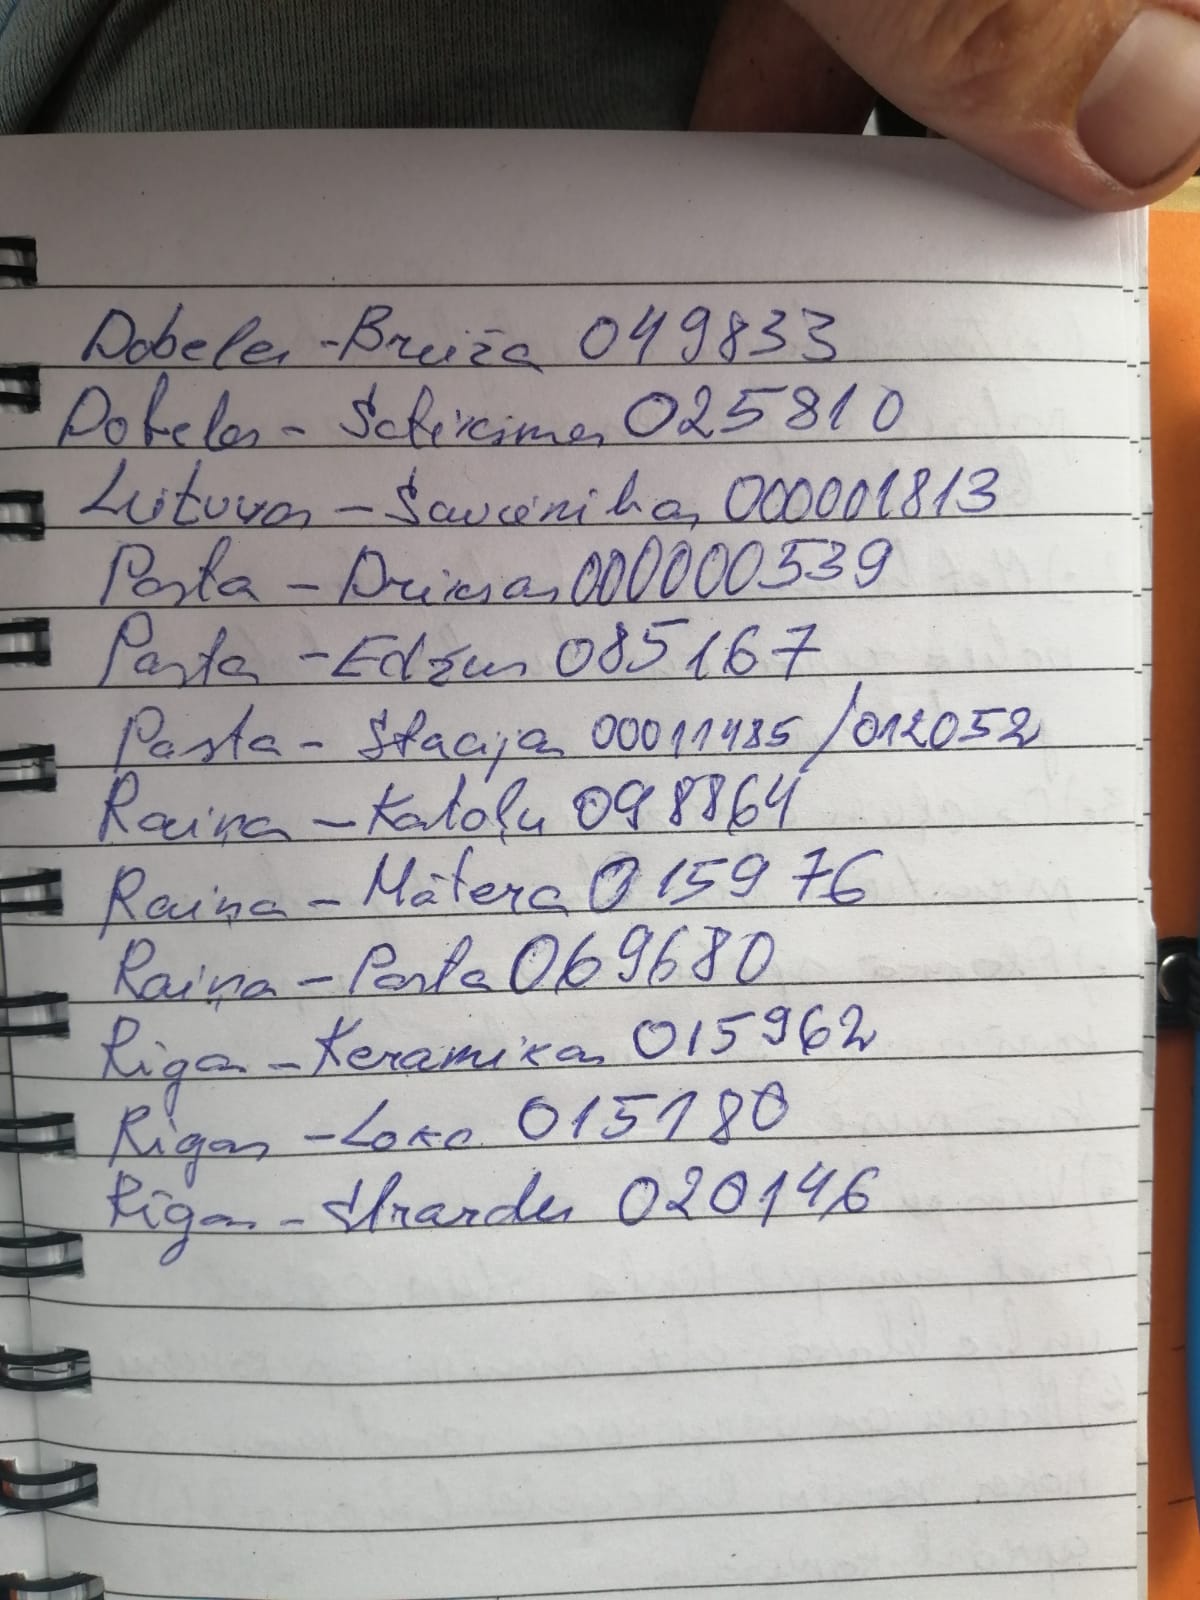 Dobeles - Bruiža 049833
Dobeles - Satiksmes 025810
Lietuvas - Savienības 000001813
Pasta - Driksas 000000539
Pasta - Edžus 085167
Pasta - Stacija 00011485 / 012052
Raiņa - Katoļu 098864
Raiņa - Mātera 015976
Raiņa - Pasta 069680
Rīgas - Keramikas 015962
Rīgas - Loka 015180
Rīgas - Strazdu 020146